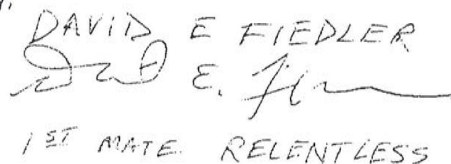 DAVID E FIEDLER
David E. Fi
1ST MATE RELENTLESS